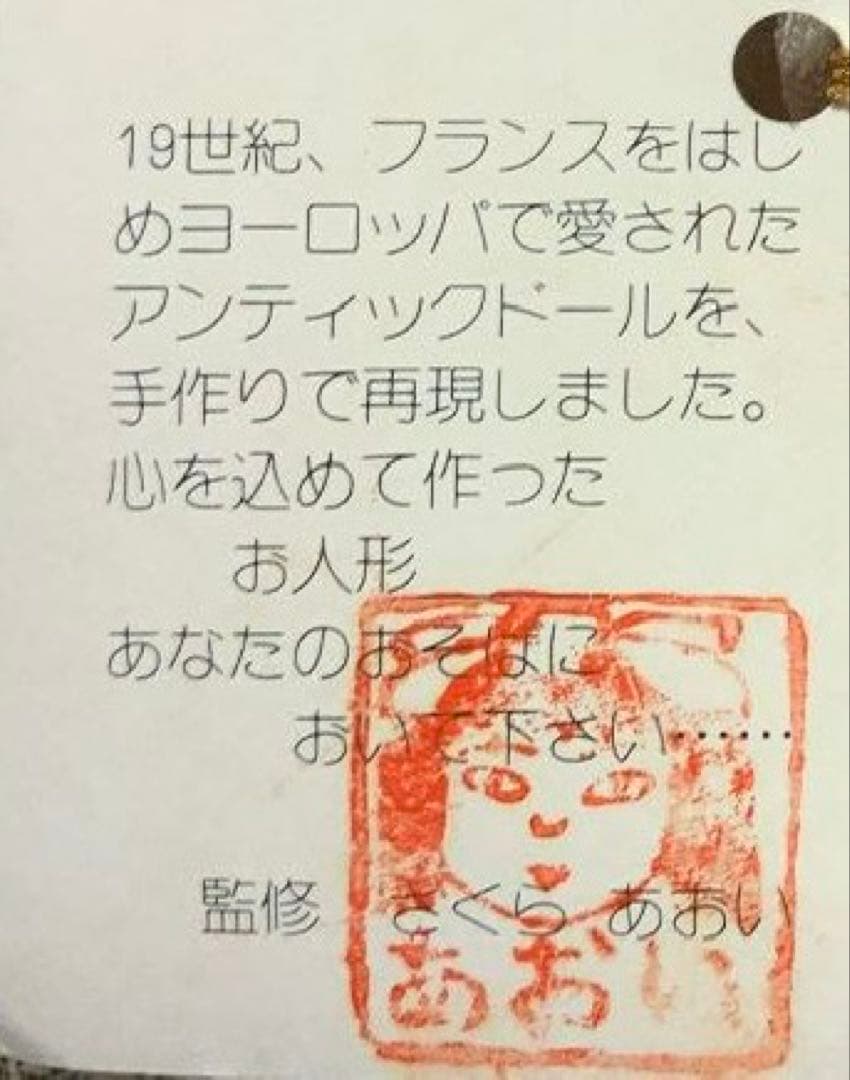 19世紀、フランスをはじ
めヨーロッパで愛された
アンティックドールを、
手作りで再現しました。
心を込めて作った
お人形
あなたのおそばに
おいて下さい……
監修　さくら あおい
あおい